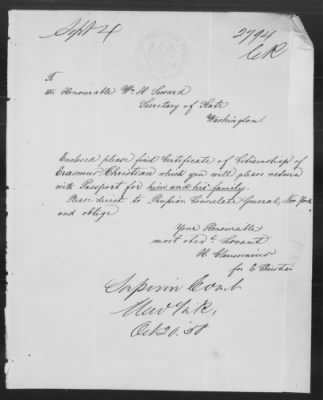 Sept 4
2794
To
the Honourable Wm H. Seward
Secretary of State
Washington
Enclosed please find Certificate of Citizenship of
Erasmus Christian which you will please return
with Passport for him and his family.
Please direct to Prussian Consulate General, New York
and oblige
Your Honourable
most obedt. Servant
H.
for E Christian
Superior Court
New York,
Oct 20.